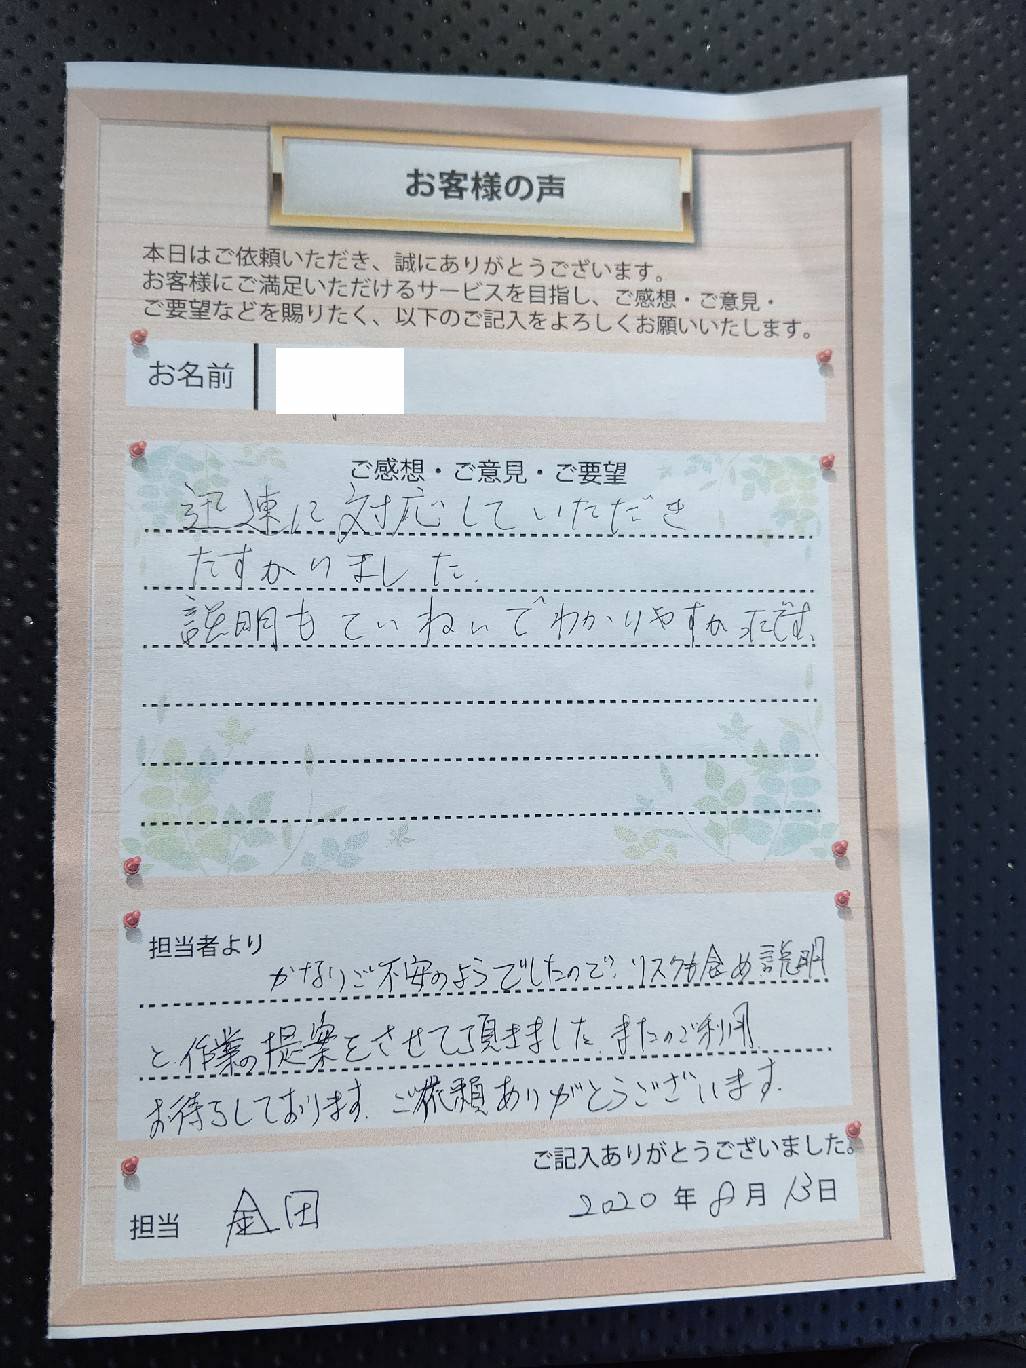 お客様の声
本日はご依頼いただき、誠にありがとうございます。
お客様にご満足いただけるサービスを目指し、ご感想・ご意見・
ご要望などを賜りたく、以下のご記入をよろしくお願いいたします。
お名前
ご感想・ご意見・ご要望
迅速に対応していただき
たすかりました.
説明もていねいでわかりやすかったです、
担当者より
かなりご不安のようでしたので、リスクも含め説明
と作業の提案をさせて頂きました、またのご利用
お待ちしております。ご依頼ありがとうございます.
ご記入ありがとうございました。
担当 金田 2020年8月13日